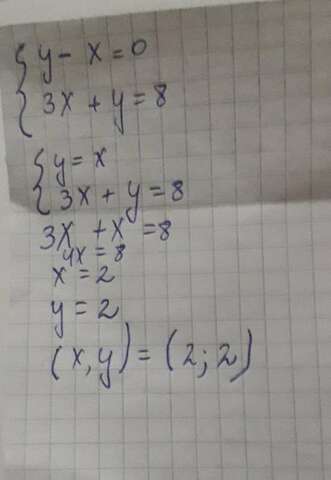 { y - x = 0
{ 3x + y = 8
{ y = x
{ 3x + y = 8
3x + x = 8
4x = 8
x = 2
y = 2
(x, y) = (2; 2)